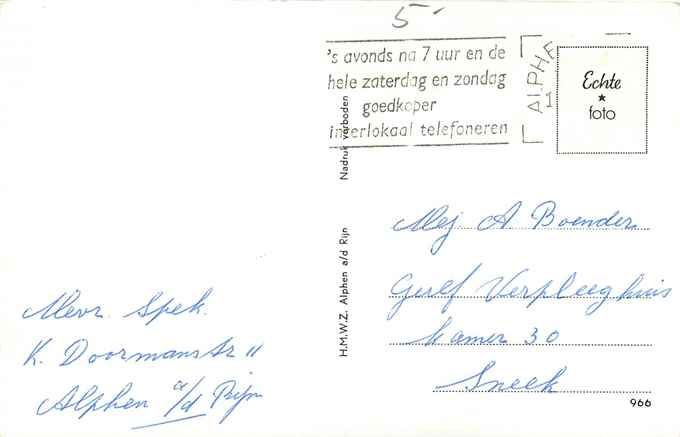 5-
's avonds na 7 uur en de
hele zaterdag en zondag
goedkoper
interlokaal telefoneren
ALPHE
1
Echte
foto
Nadruk verboden
H.M.W.Z. Alphen a/d Rijn
Mej A Boender
Geref Verpleeghuis
kamer 30
Sneek
Mevr. Spek.
K. Doormanstr 11
Alphen a/d Rijn
966